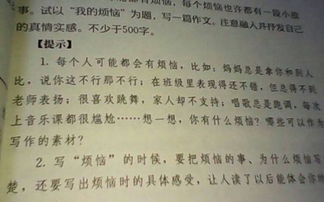 都有烦恼，每个烦恼也许都有一段小故
事。试以“我的烦恼”为题，写一篇作文，注意融入并抒发自己
的真情实感。不少于500字。
【提示】
1. 每个人可能都会有烦恼，比如：妈妈总是拿你和别人
比，说你这不行那不行；在班级里表现得还不错，但总得不到
老师表扬；很喜欢跳舞，家人却不支持；唱歌总是跑调，每次
上音乐课都很尴尬……想一想，你有什么烦恼？哪些可以作为
写作的素材？
2. 写“烦恼”的时候，要把烦恼的事、为什么烦恼写
楚，还要写出烦恼时的具体感受，让人读了以后能体会你的